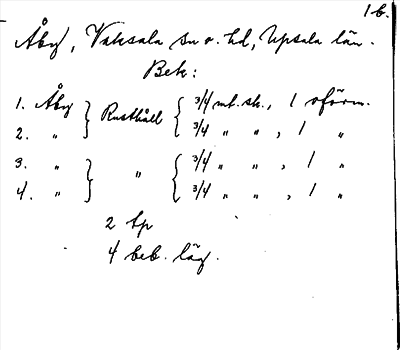 1 b.
Åby, Vaksala sn o. hd, Upsala län.
Bek:
1. Åby } Rusthåll { 3/4 mt. sk., 1 oförm.
2. " } { 3/4 " ", 1 "
3. " } " { 3/4 " ", 1 "
4. " } { 3/4 " ", 1 "
2 tp
4 beb. läg.